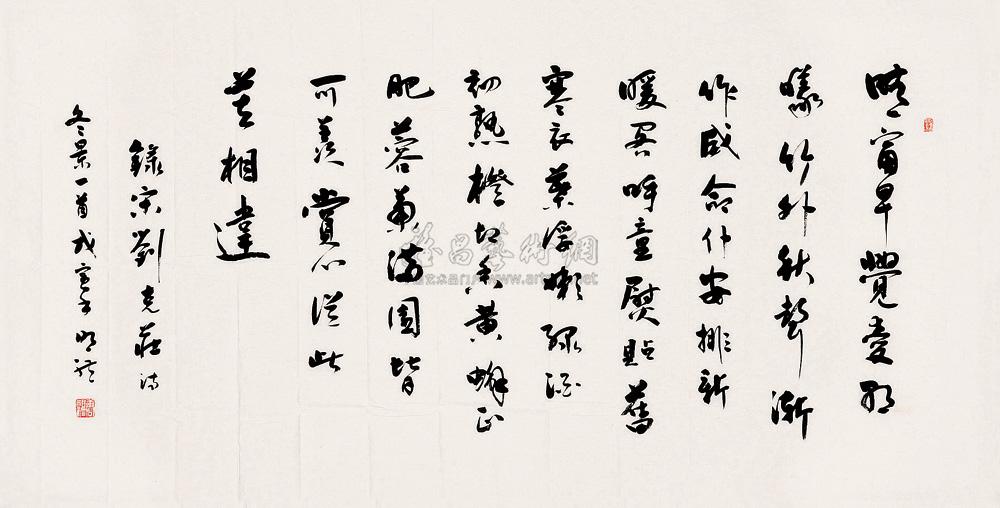 晴窗早覺愛朝
曦竹外秋聲漸
作威命仆安排新
暖閣呼童熨貼舊
寒衣葉浮嫩綠酒
初熟橙切香黄蟹正
肥蓉菊滿園皆
可羨賞心從此
莫相違
錄宋劉克莊詩
冬景一首戊寅